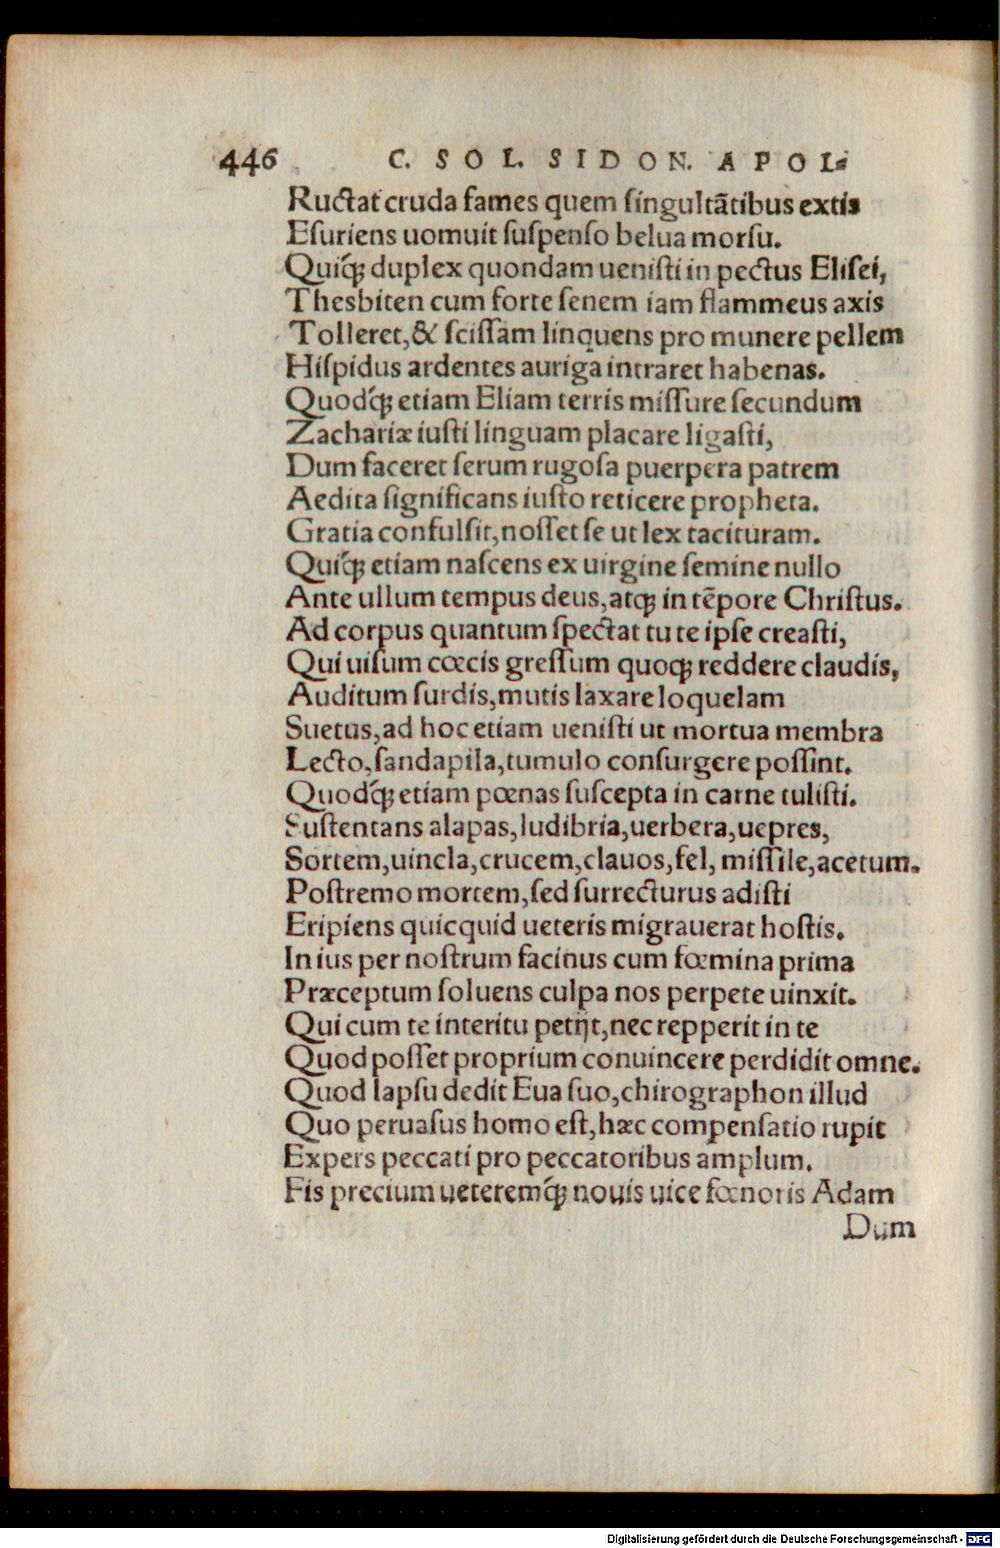 446 C. SOL. SIDON. APOL⸗
Ructat cruda fames quem ſingultātibus extis
Eſuriens uomuit ſuſpenſo belua morſu.
Quiq́ꝫ duplex quondam ueniſti in pectus Eliſei,
Thesbiten cum forte ſenem iam flammeus axis
Tolleret,& ſciſſam linquens pro munere pellem
Hiſpidus ardentes auriga intraret habenas.
Quodq́ꝫ etiam Eliam terris miſſure ſecundum
Zachariæ iuſti linguam placare ligaſti,
Dum faceret ſerum rugoſa puerpera patrem
Aedita ſignificans iuſto reticere propheta.
Gratia confulſit,noſſet ſe ut lex tacituram.
Quiq́ꝫ etiam naſcens ex uirgine ſemine nullo
Ante ullum tempus deus,atqꝫ in tēpore Chriſtus.
Ad corpus quantum ſpectat tu te ipſe creaſti,
Qui uiſum cœcis greſſum quoqꝫ reddere claudis,
Auditum ſurdis,mutis laxare loquelam
Suetus,ad hoc etiam ueniſti ut mortua membra
Lecto,ſandapila,tumulo conſurgere poſſint.
Quodq́ꝫ etiam pœnas ſuſcepta in carne tuliſti.
Suſtentans alapas,ludibria,uerbera,uepres,
Sortem,uincla,crucem,clauos,fel, miſſile,acetum.
Poſtremo mortem,ſed ſurrecturus adiſti
Eripiens quicquid ueteris migrauerat hoſtis.
In ius per noſtrum facinus cum fœmina prima
Præceptum ſoluens culpa nos perpete uinxit.
Qui cum te interitu petijt,nec repperit in te
Quod poſſet proprium conuincere perdidit omne.
Quod lapſu dedit Eua ſuo,chirographon illud
Quo peruaſus homo eſt,hæc compenſatio rupit
Expers peccati pro peccatoribus amplum.
Fis precium ueteremq́ꝫ nouis uice fœnoris Adam
Dum
Digitalisierung gefördert durch die Deutsche Forschungsgemeinschaft - DFG